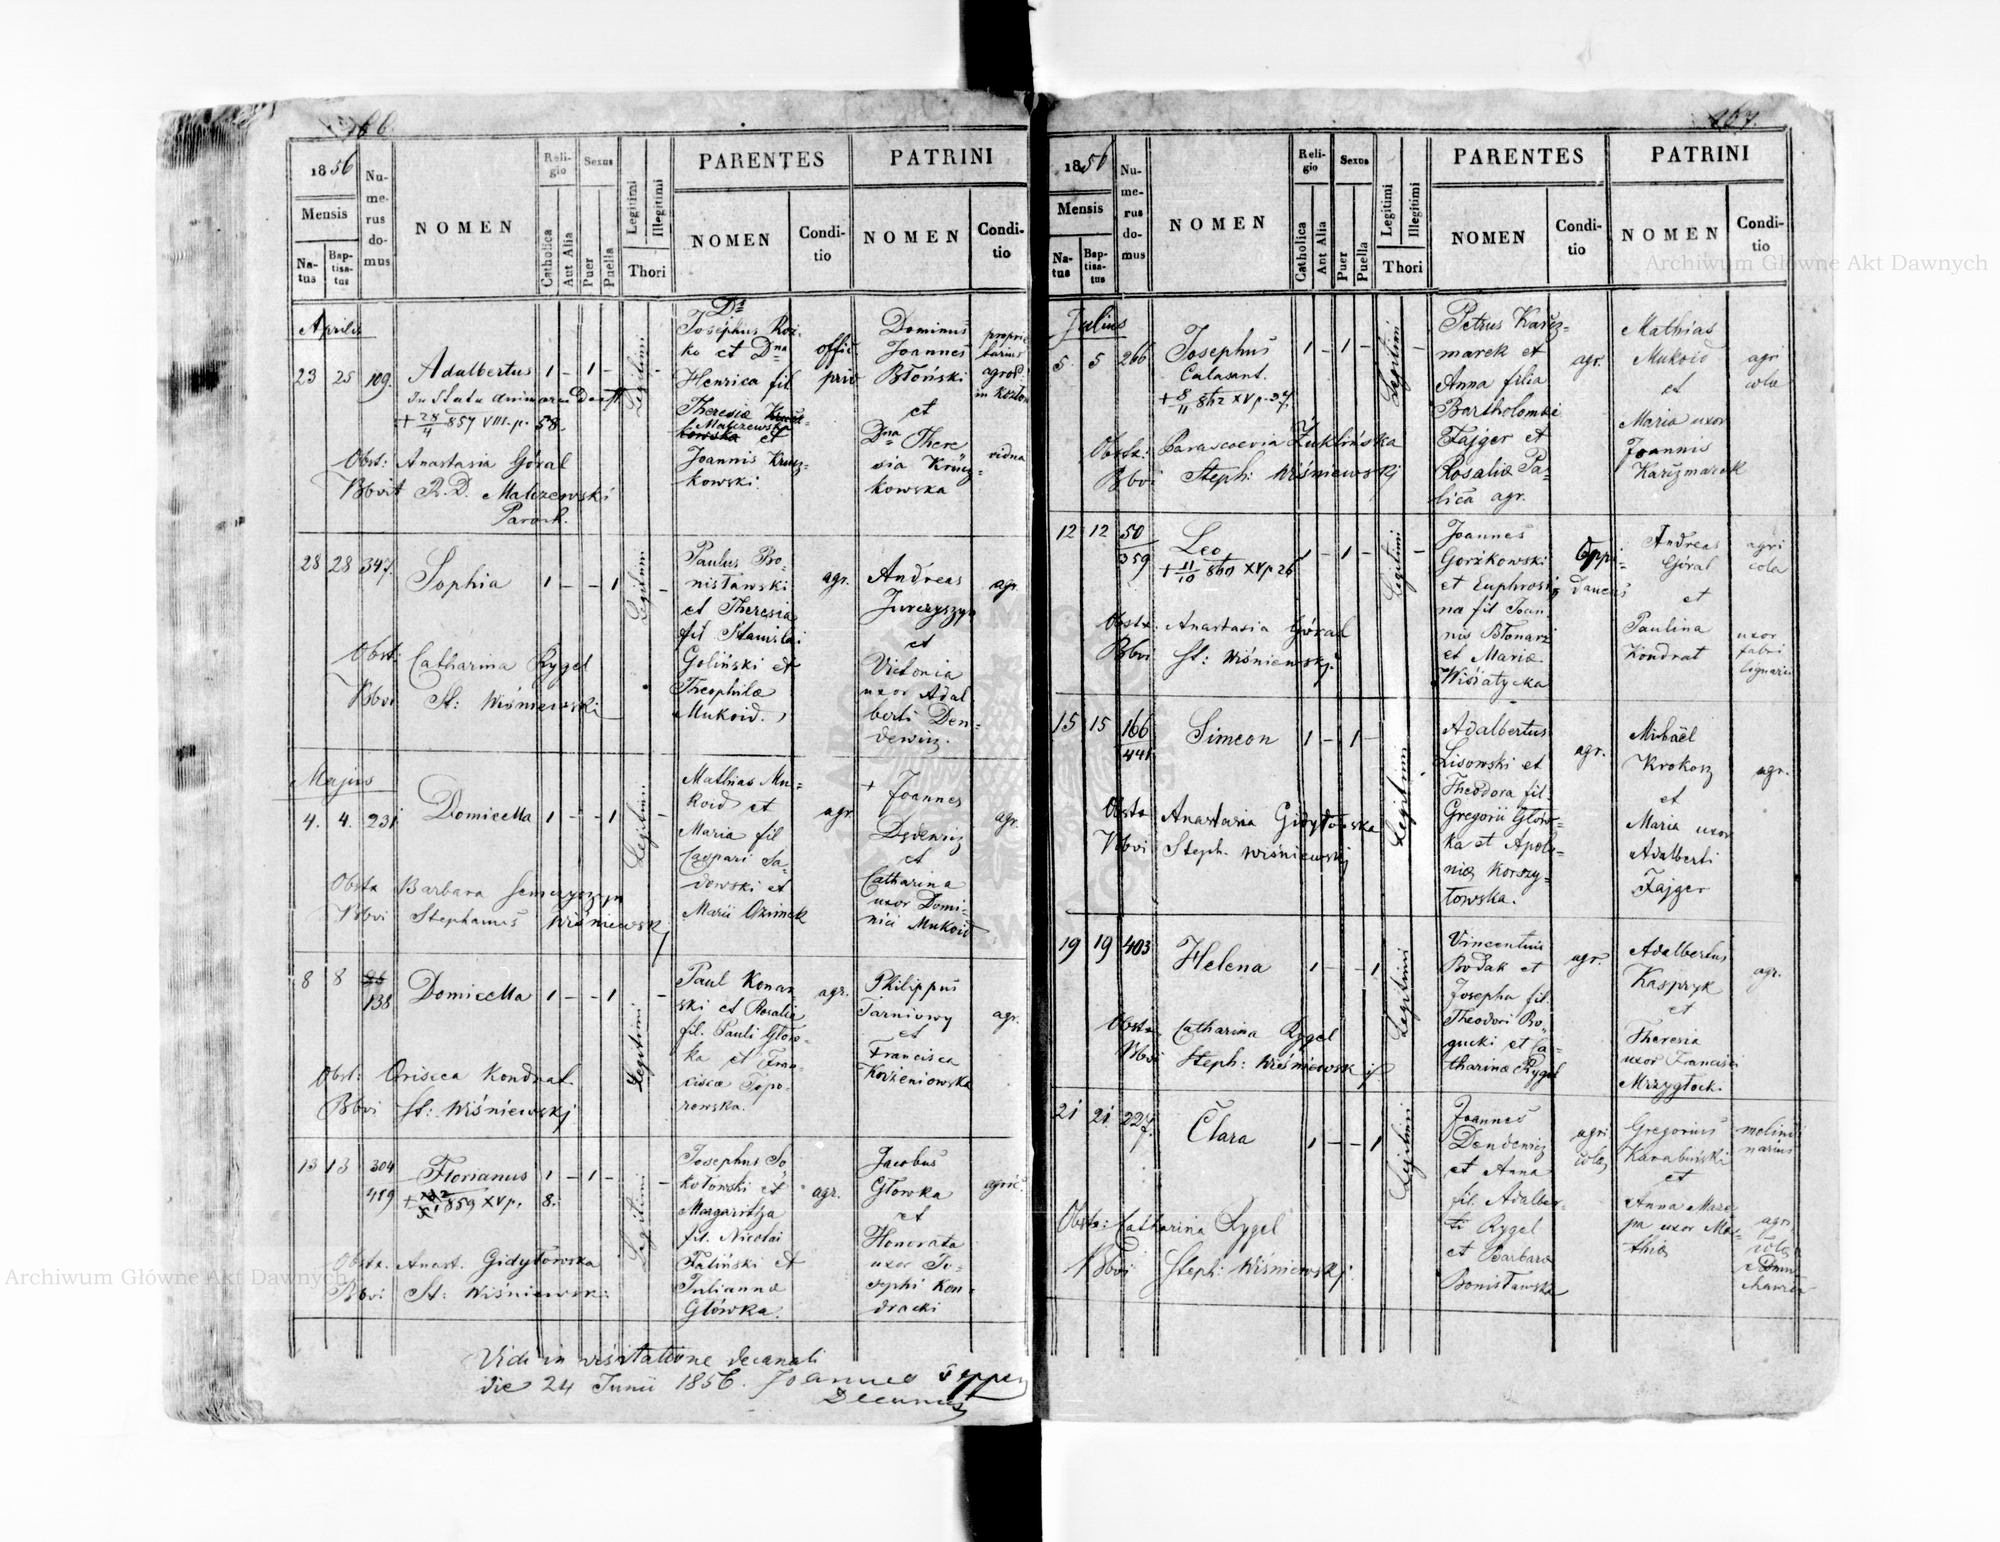 166.
1856
Mensis
Na-
tus
Bap-
tisa-
tus
Nu-
me-
rus
do-
mus
NOMEN
Reli-
gio
Catholica
Aut Alia
Sexus
Puer
Puella
Legitimi
Illegitimi
Thori
PARENTES
NOMEN
Condi-
tio
PATRINI
NOMEN
Condi-
tio
Aprilis
23 25 109.
Adalbertus 1 - 1 - -
+ 28/4 857 VIII. p. 58.
Obst: Anastasia Góral
Bbvit R. D. Maliszewski
Paroch.
Legitimi
Josephus Roz-
ko et Dna
Henrica fil
Theresiæ
Maliszewska
et
Joannis Krucz-
kowski.
offic.
priv
Dominus
Joannes
Błoński
et
Dna There
sia Krucz-
kowska
proprie
tarius
vidua
28 28 347.
Sophia 1 - - 1 -
Obst: Catharina Rygel
Bbvi St: Wiśniewski
Legitimi
Paulus Bo-
nisławski
et Theresia
fil Stanislai
Goliński et
Theophilæ
Mukoid.
agr.
Andreas
Jurczyszyn
et
Victonia
uxor Adal
berti Den-
dewicz.
agr.
Majus
4. 4. 231
Domicella 1 - - 1 -
Obstx Barbara
Bbvi Stephanus Wiśniewskj
Legitimi
Mathias Mu-
koid et
Maria fil
Caspari Sa-
dowski et
Marii Ozimek
agr.
+ Joannes
et
Catharina
uxor Domi-
nici Mukoid
agr.
8 8 138
Domicella 1 - - 1 -
Obst: Kondrat
Bbvi St: Wiśniewskj
Legitimi
Paul Konar
ski et Rosalia
fil. Pauli Głów-
ka et Fran-
ciscæ Topo-
rowska.
agr.
Philippus
Tarniowy
et
Francisca
Korzeniowska
agr.
13 13 304
419
Florianus 1 - 1 - -
859 XV p. 8.
Obstx. Anast. Gidyłowska
Bbvi St: Wiśniewski
Legitimi
Josephus So-
kołowski et
Margaritha
fil. Nicolai
Faliński et
Juliannæ
Główka.
agr.
Jacobus
Głowka
et
Honorata
uxor Jo-
sephi Kon-
dracki
agric.
Vidi in visitatione decanali
die 24 Junii 1856. Joannes
Decanus
167.
1856
Mensis
Na-
tus
Bap-
tisa-
tus
Nu-
me-
rus
do-
mus
NOMEN
Reli-
gio
Catholica
Aut Alia
Sexus
Puer
Puella
Legitimi
Illegitimi
Thori
PARENTES
NOMEN
Condi-
tio
PATRINI
NOMEN
Condi-
tio
Julius
5 5 266
Josephus 1 - 1 - -
Calasant.
+ 8/11 862 XV p. 37.
Obstx: Parascevia
Bbvi Steph: Wiśniewskj
Legitimi
Petrus Karcz-
marek et
Anna filia
Bartholomei
Fajger et
Rosaliæ Pa-
lica agr.
agr.
Mathias
Mukoid
et
Maria uxor
Joannis
Karczmarek
agri
colæ
12 12 50
359
Leo 1 - 1 - -
+ 11/10 860 XV p 26
Obstx: Anastasia Góral
Bbvi St: Wiśniewskj.
Legitimi
Joannes
Gorzkowski
et Euphrosi-
na fil Joan
nis Błonarz
et Mariæ
Wisiatycka
Oppi-
daneus
Andreas
Góral
et
Paulina
Kondrat
agri
cola
uxor
fabri
lignarii
15 15 166
441
Simeon 1 - 1 -
Obstx Anastasia Gidyłowska
Bbvi Steph. Wiśniewskj
Legitimi
Adalbertus
Lisowski et
Theodora fil
Gregorii Głów-
ka et Apolo-
niæ Korzy-
łowska.
agr.
Michäel
Krokosz
et
Maria uxor
Adalberti
Fajger
agr.
19 19 403
Helena 1 - - 1
Obstx Catharina Rygel
Bbvi Steph: Wiśniewskj
Legitimi
Vincentius
Bodak et
Josepha fil.
Theodori Bo-
gucki et Ca-
tharinæ Rygel
agr.
Adalbertus
Kasprzyk
et
Theresia
uxor Francisci
Mrzygłock.
agr.
21 21. 227.
Clara 1 - - 1
Obstx: Catharina Rygel
Bbvi Steph: Wiśniewskj.
Legitimi
Joannes
Dendewicz
et Anna
fil. Adalber-
ti Rygel
et Barbaræ
Bonisławska
agri
colæ
Gregorius
Karabiński
et
Anna Maze-
pa uxor Ma-
thiæ
molini
narius
agri
colæ
Archiwum Główne Akt Dawnych
Archiwum Główne Akt Dawnych